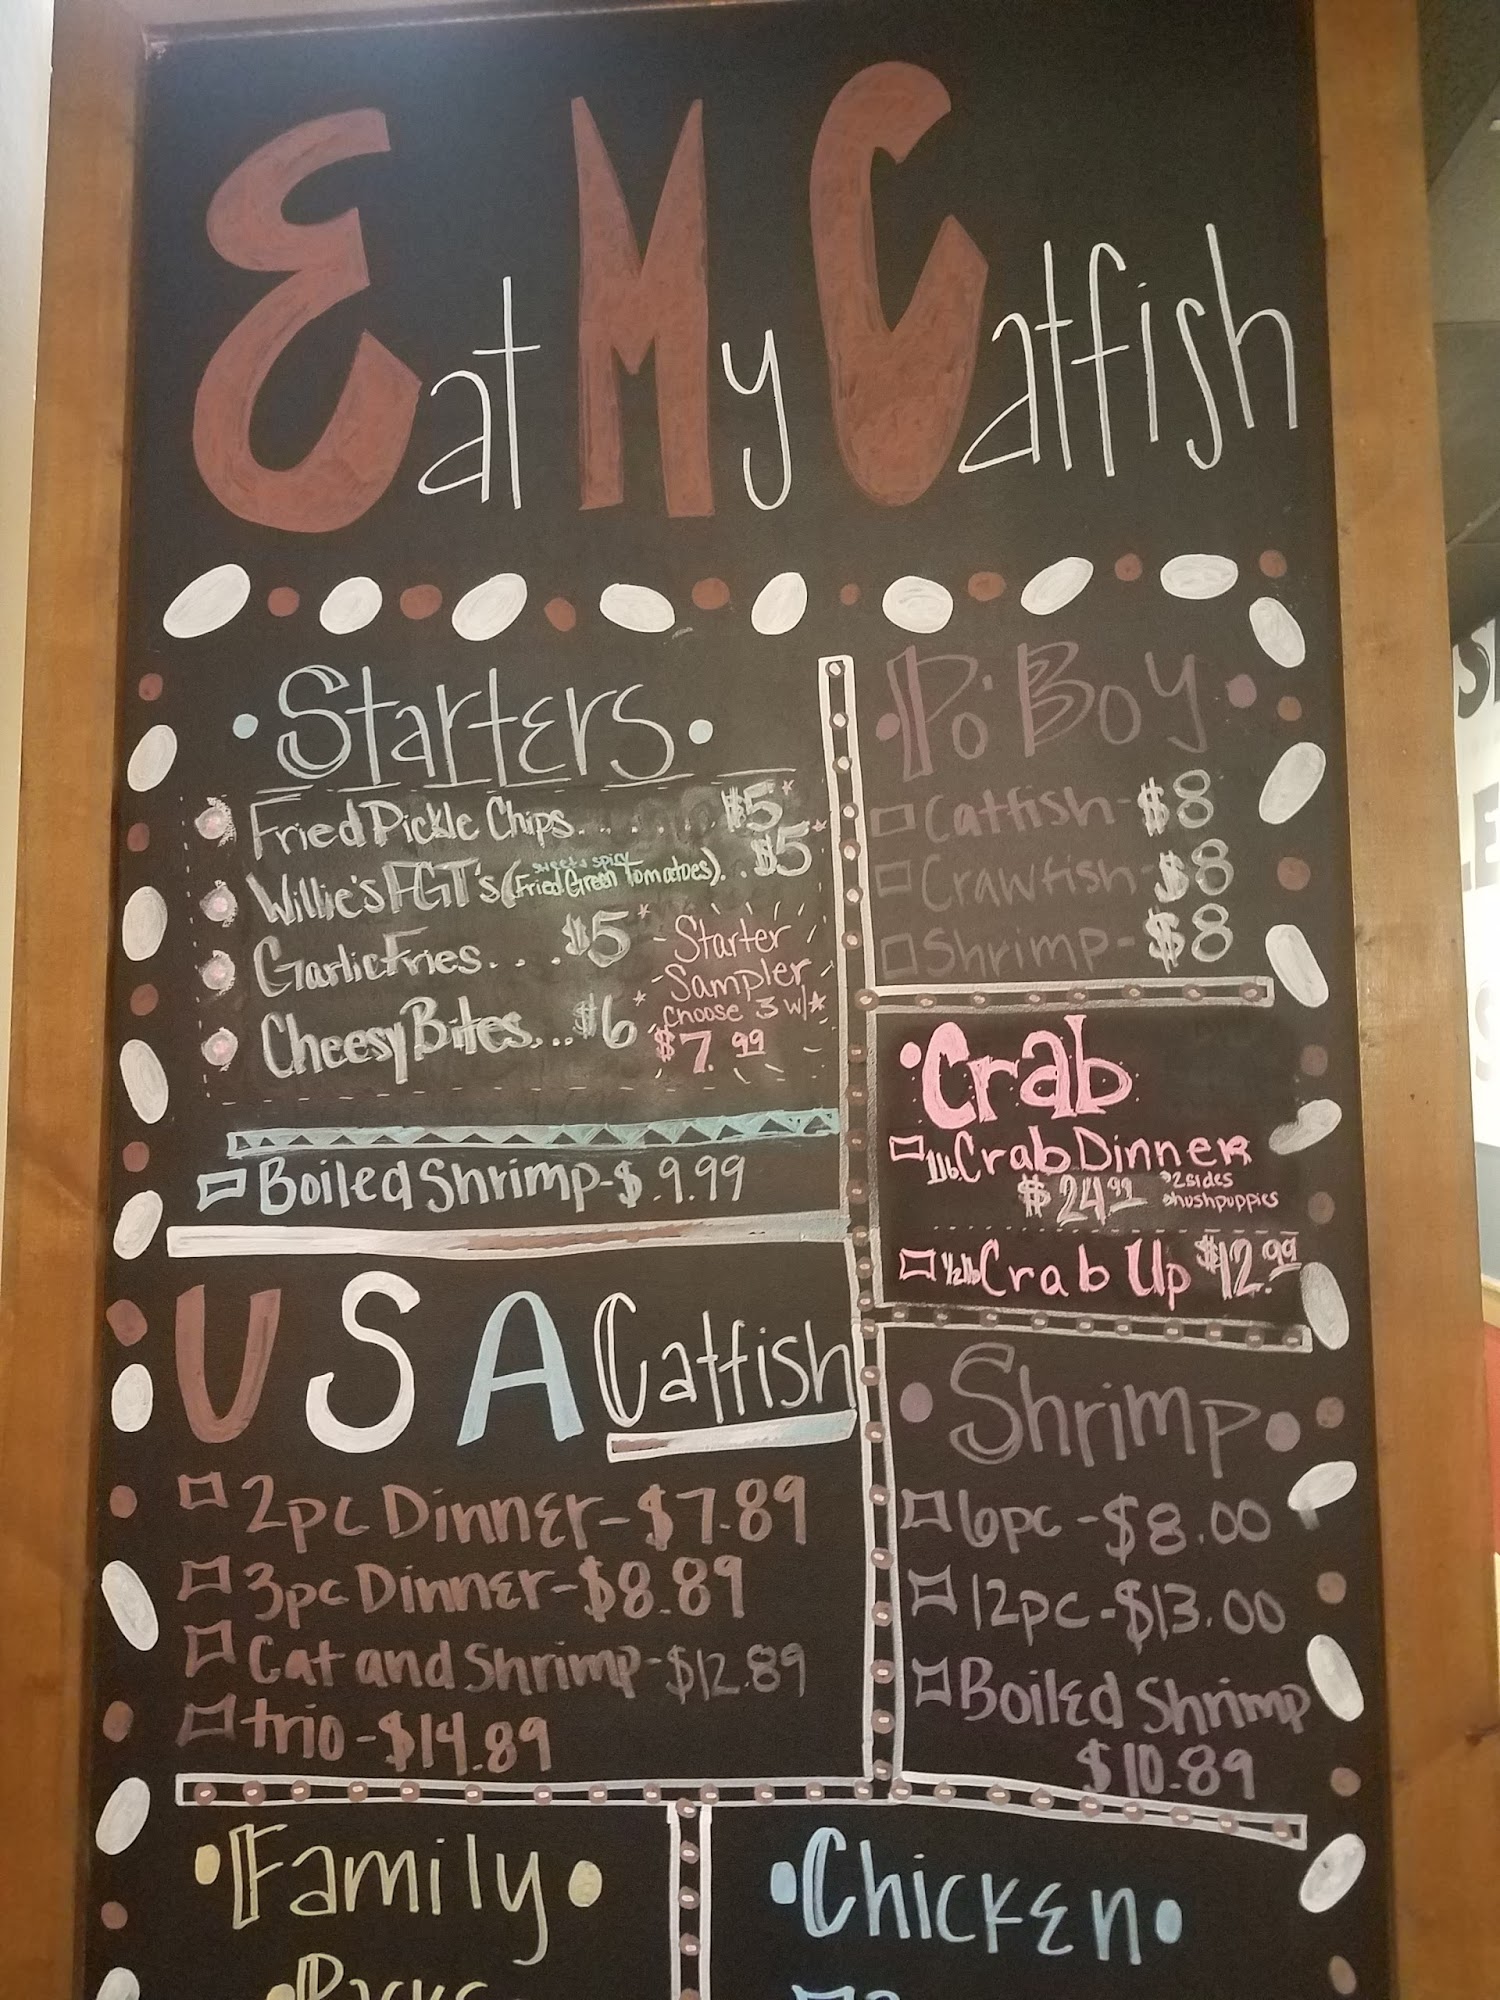 Eat My Catfish
Starters
Fried Pickle Chips....... $5*
sweet & spicy
Willie's FGT's (Fried Green Tomatoes)... $5*
Garlic Fries.... $5*
Cheesy Bites... $6*
Starter
Sampler
choose 3 w/*
$7.99
Boiled Shrimp-$.9.99
Po' Boy
Catfish-$8
Crawfish-$8
Shrimp-$8
Crab
1lb. Crab Dinner
$24.99
*2sides
*hushpuppies
1/2lb Crab Up $12.99
USA Catfish
2pc Dinner-$7.89
3pc Dinner-$8.89
Cat and Shrimp-$12.89
trio-$14.89
Shrimp
6pc-$8.00
12pc-$13.00
Boiled Shrimp
$10.89
Family
Packs
Chicken